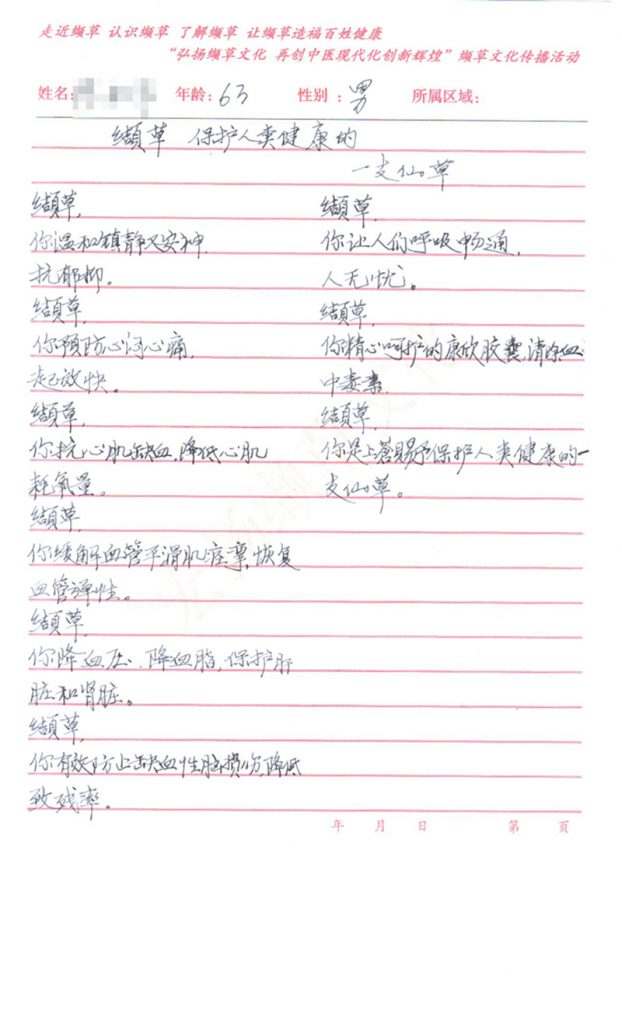 走近缬草 认识缬草 了解缬草 让缬草造福百姓健康
“弘扬缬草文化 再创中医现代化创新辉煌”缬草文化传播活动
姓名: 年龄: 63 性别：男 所属区域：
缬草 保护人类健康的
一支仙草
缬草,
你温和镇静又安神,
抗郁抑。
缬草,
你预防心闷心痛,
起效快。
缬草,
你抗心肌缺血,降低心肌
耗氧量。
缬草,
你缓解血管平滑肌痉挛,恢复
血管弹性。
缬草,
你降血压、降血脂,保护肝
脏和肾脏。
缬草,
你有效防止缺血性脑损伤,降低
致残率。
缬草,
你让人们呼吸畅通,
人无忧。
缬草,
你精心呵护的康欣胶囊,清除血
中毒素,
缬草,
你是上苍赐予保护人类健康的一
支仙草。
年 月 日 第 页